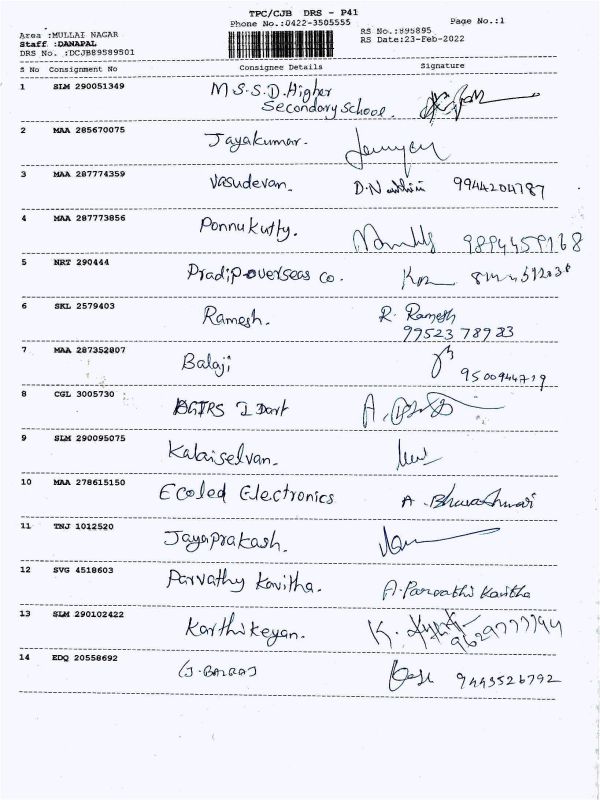 TPC/CJB DRS - P41
Phone No.:0422-3505555
Page No.:1
Area :MULLAI NAGAR
RS No.:895895
Staff :DANAPAL
RS Date:23-Feb-2022
DRS No. :DCJB89589501
S No Consignment No Consignee Details Signature
1 SLM 290051349 M.S.S.D. Higher
Secondary School.
2 MAA 285670075 Jayakumar.
3 MAA 287774359 Vasudevan. 9944204787
4 MAA 287773856 Ponnukutty.
5 NRT 290444 Pradip overseas co.
6 SKL 2579403 Ramesh. R. Ramesh
99523 78983
7 MAA 287352807 Balaji
9500944719
8 CGL 3005730
9 SLM 290095075 Kalaiselvan.
10 MAA 278615150 Ecoled Electronics
11 TNJ 1012520 Jayaprakash.
12 SVG 4518603 Parvathy Kavitha. A. Parvathi Kavitha
13 SLM 290102422 Karthikeyan.
14 EDQ 20558692 9443526792